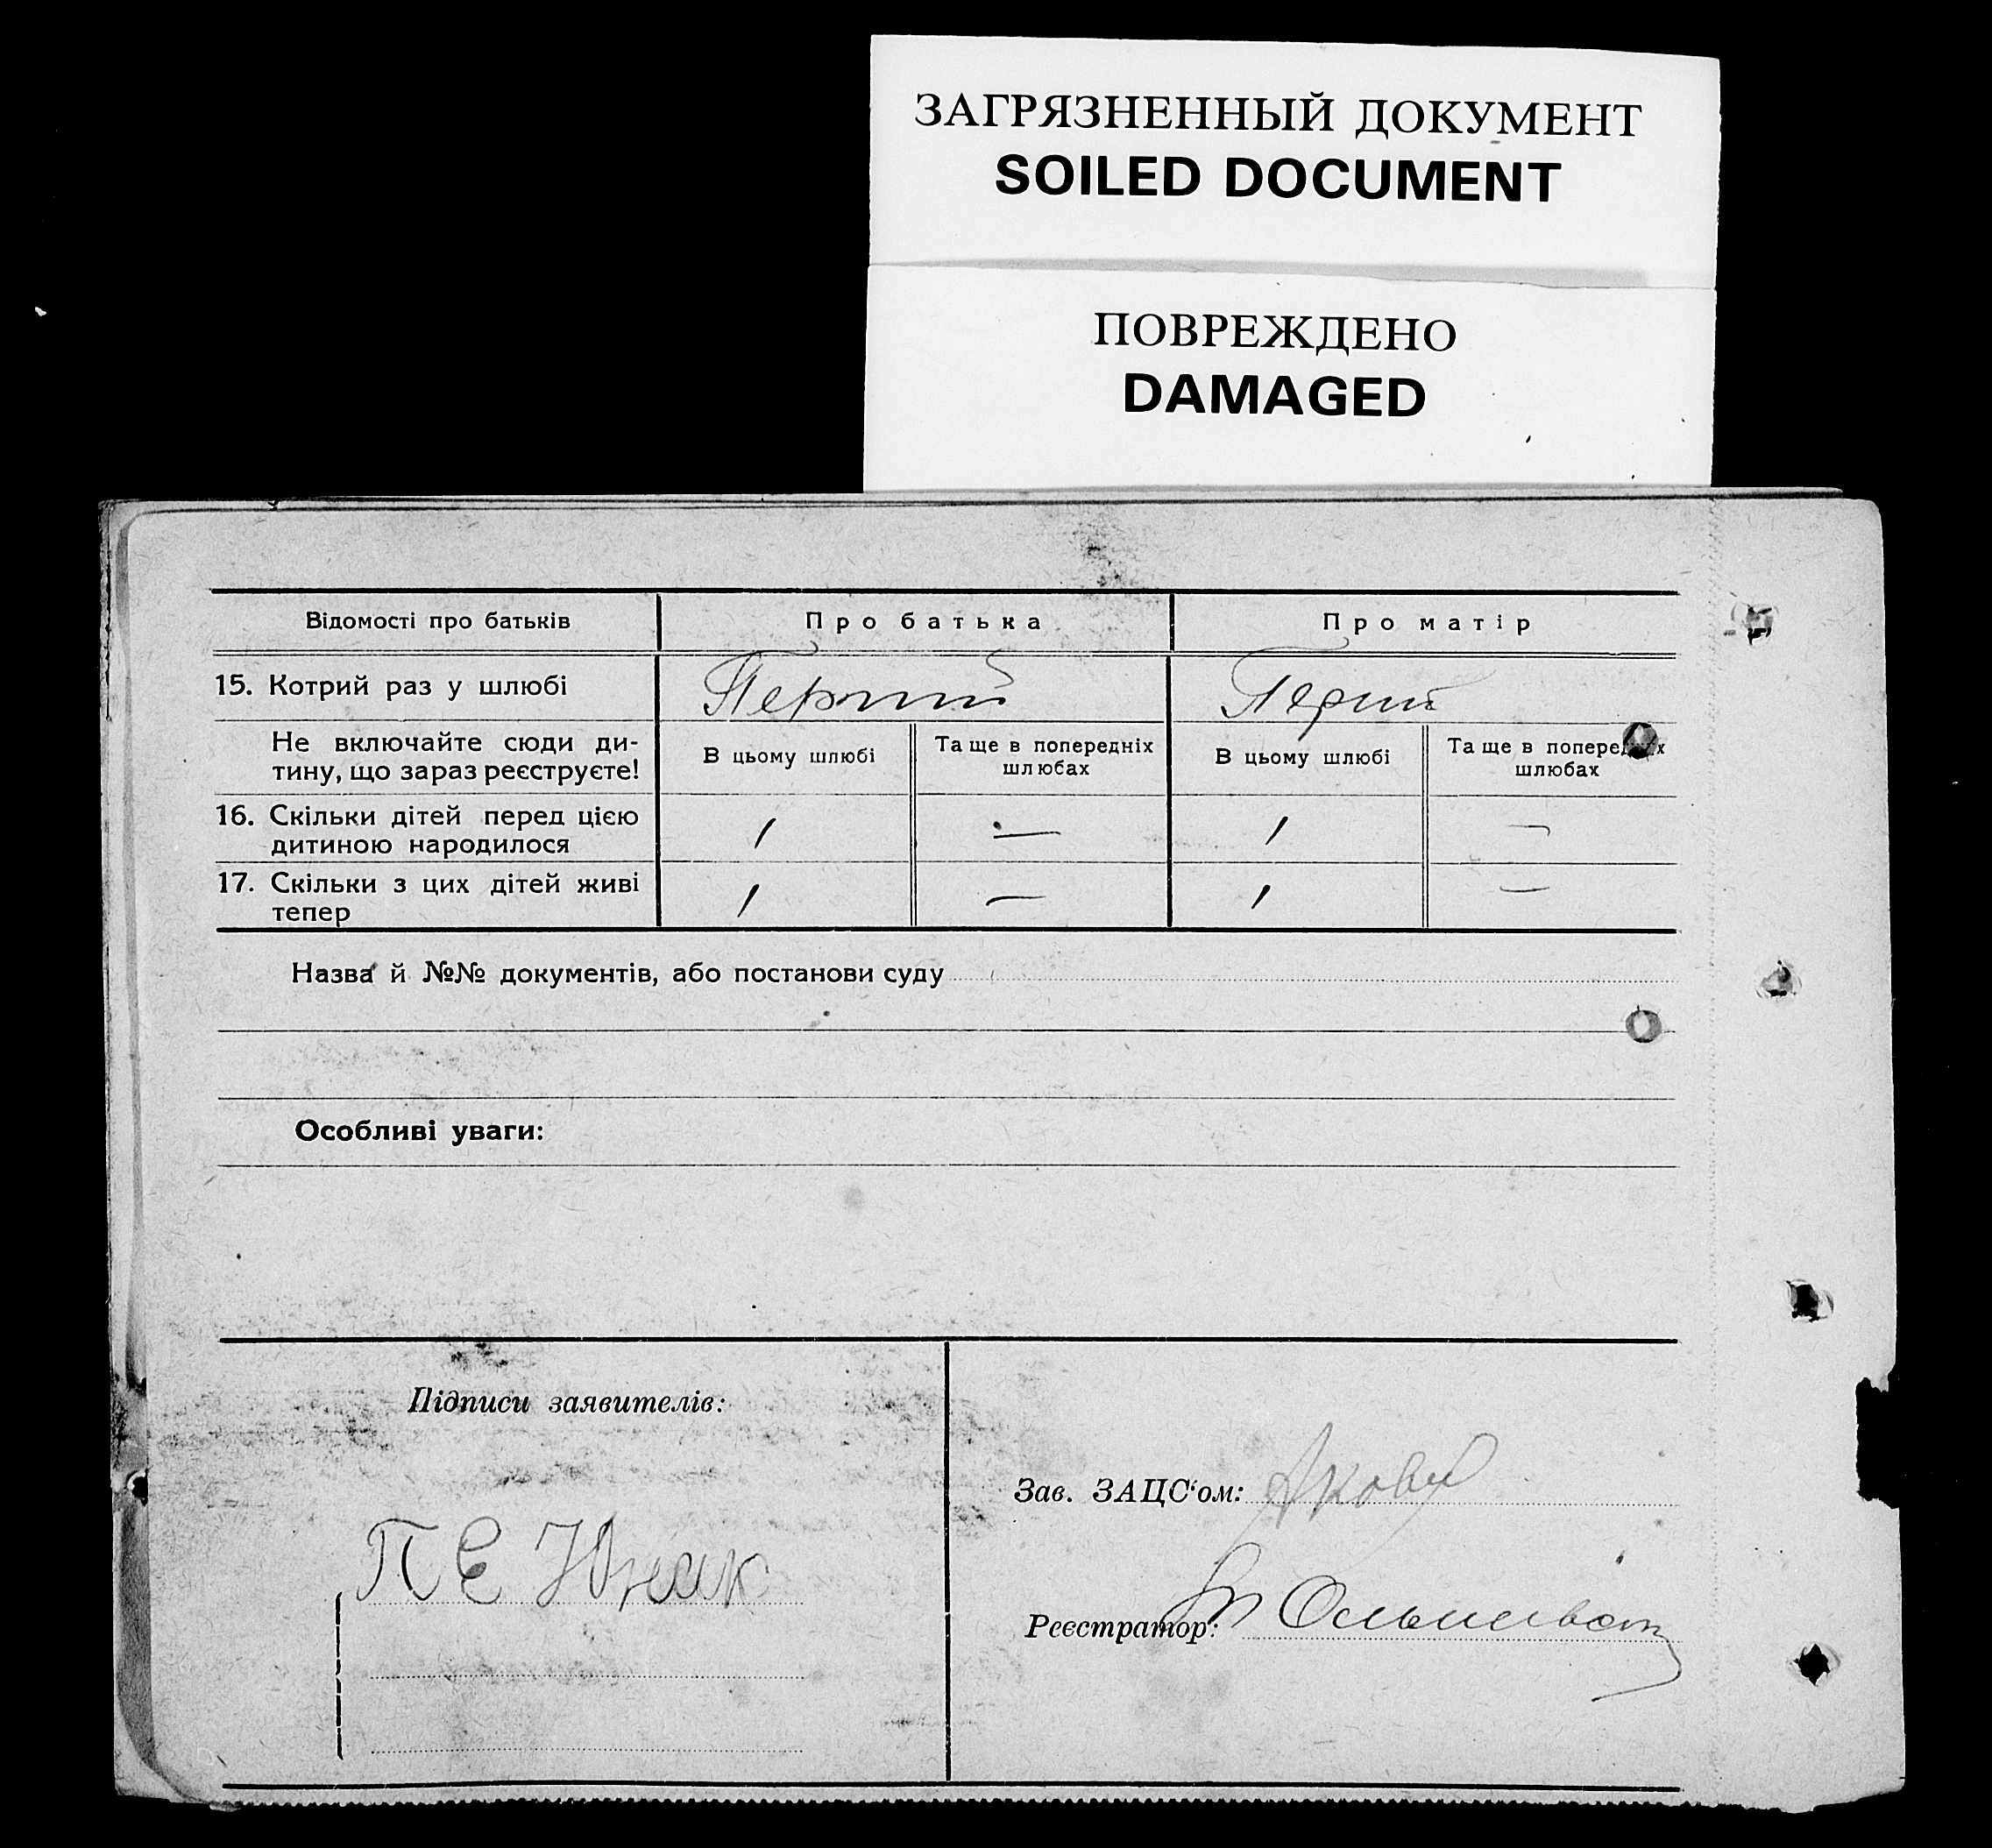 ЗАГРЯЗНЕННЫЙ ДОКУМЕНТ
SOILED DOCUMENT
ПОВРЕЖДЕНО
DAMAGED
Відомості про батьків Про батька Про матір
15. Котрий раз у шлюбі Перший Перший
Не включайте сюди ди-
тину, що зараз реєструєте! В цьому шлюбі Та ще в попередніх шлюбах В цьому шлюбі Та ще в попередніх шлюбах
16. Скільки дітей перед цією
дитиною народилося 1 — 1 —
17. Скільки з цих дітей живі
тепер 1 — 1 —
Назва й №№ документів, або постанови суду
Особливі уваги:
Підписи заявителів:
Зав. ЗАЦС'ом:
П Є Юнак
Реєстратор: